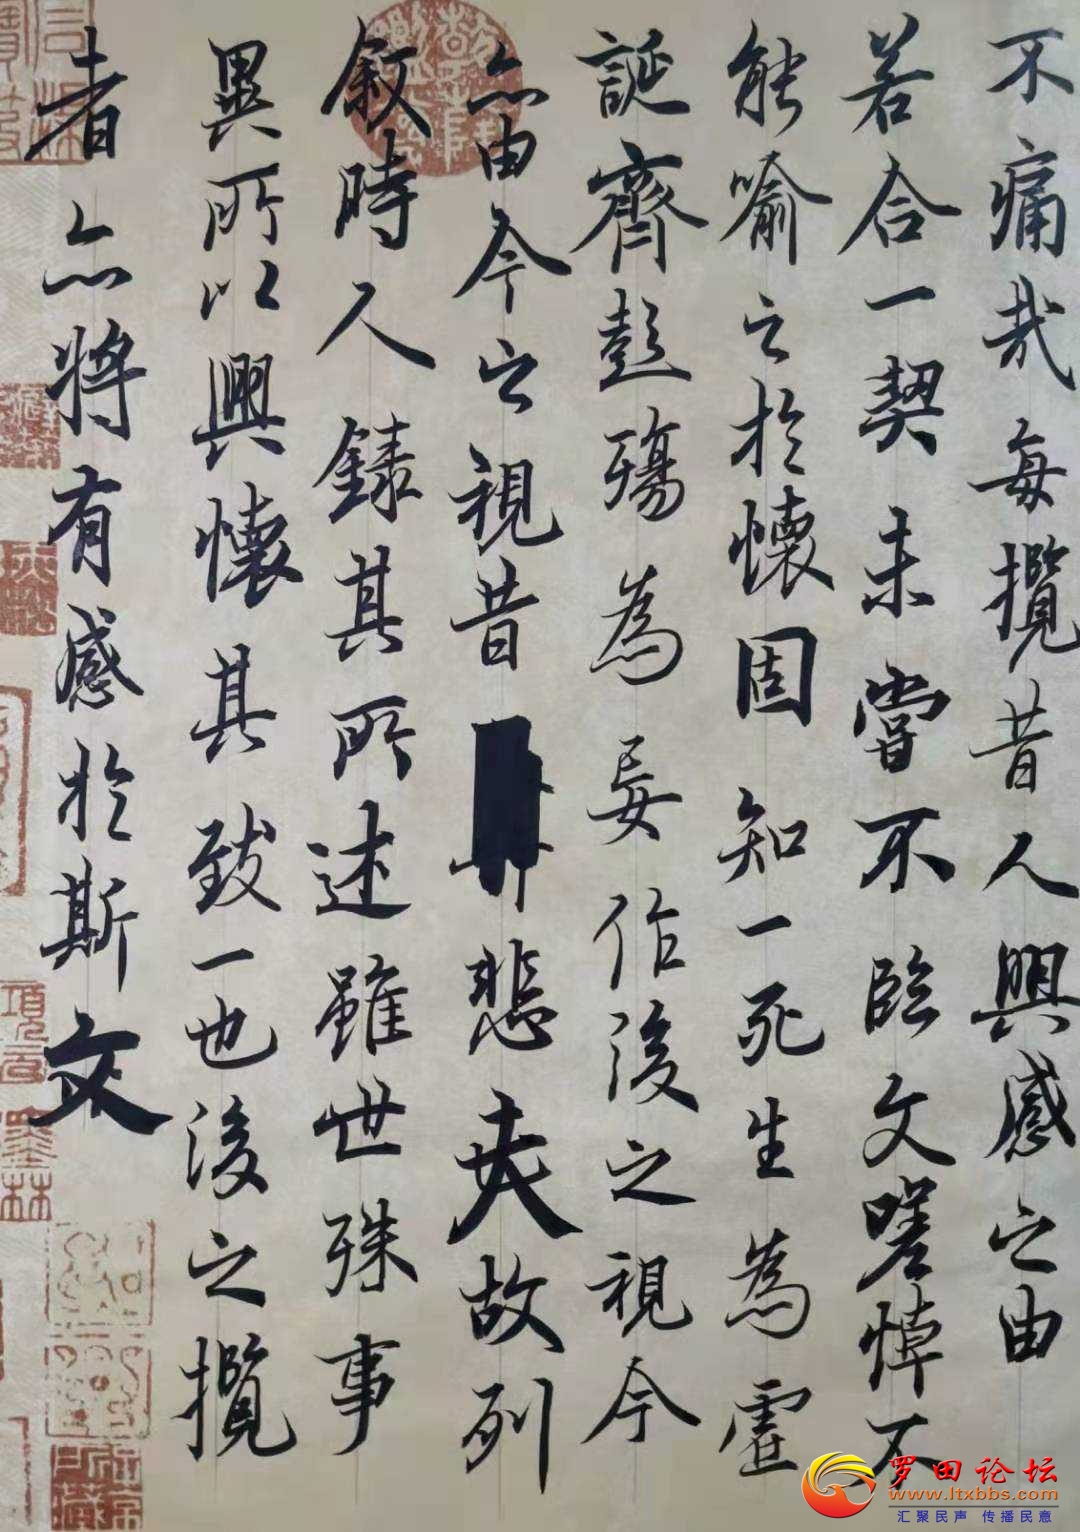 不痛哉每攬昔人興感之由
若合一契未嘗不臨文嗟悼不
能喻之於懷固知一死生為虛
誕齊彭殤為妄作後之視今
亦由今之視昔悲夫故列
敘時人錄其所述雖世殊事
異所以興懷其致一也後之攬
者亦將有感於斯文
罗田论坛
www.ltxbbs.com
汇聚民声 传播民意